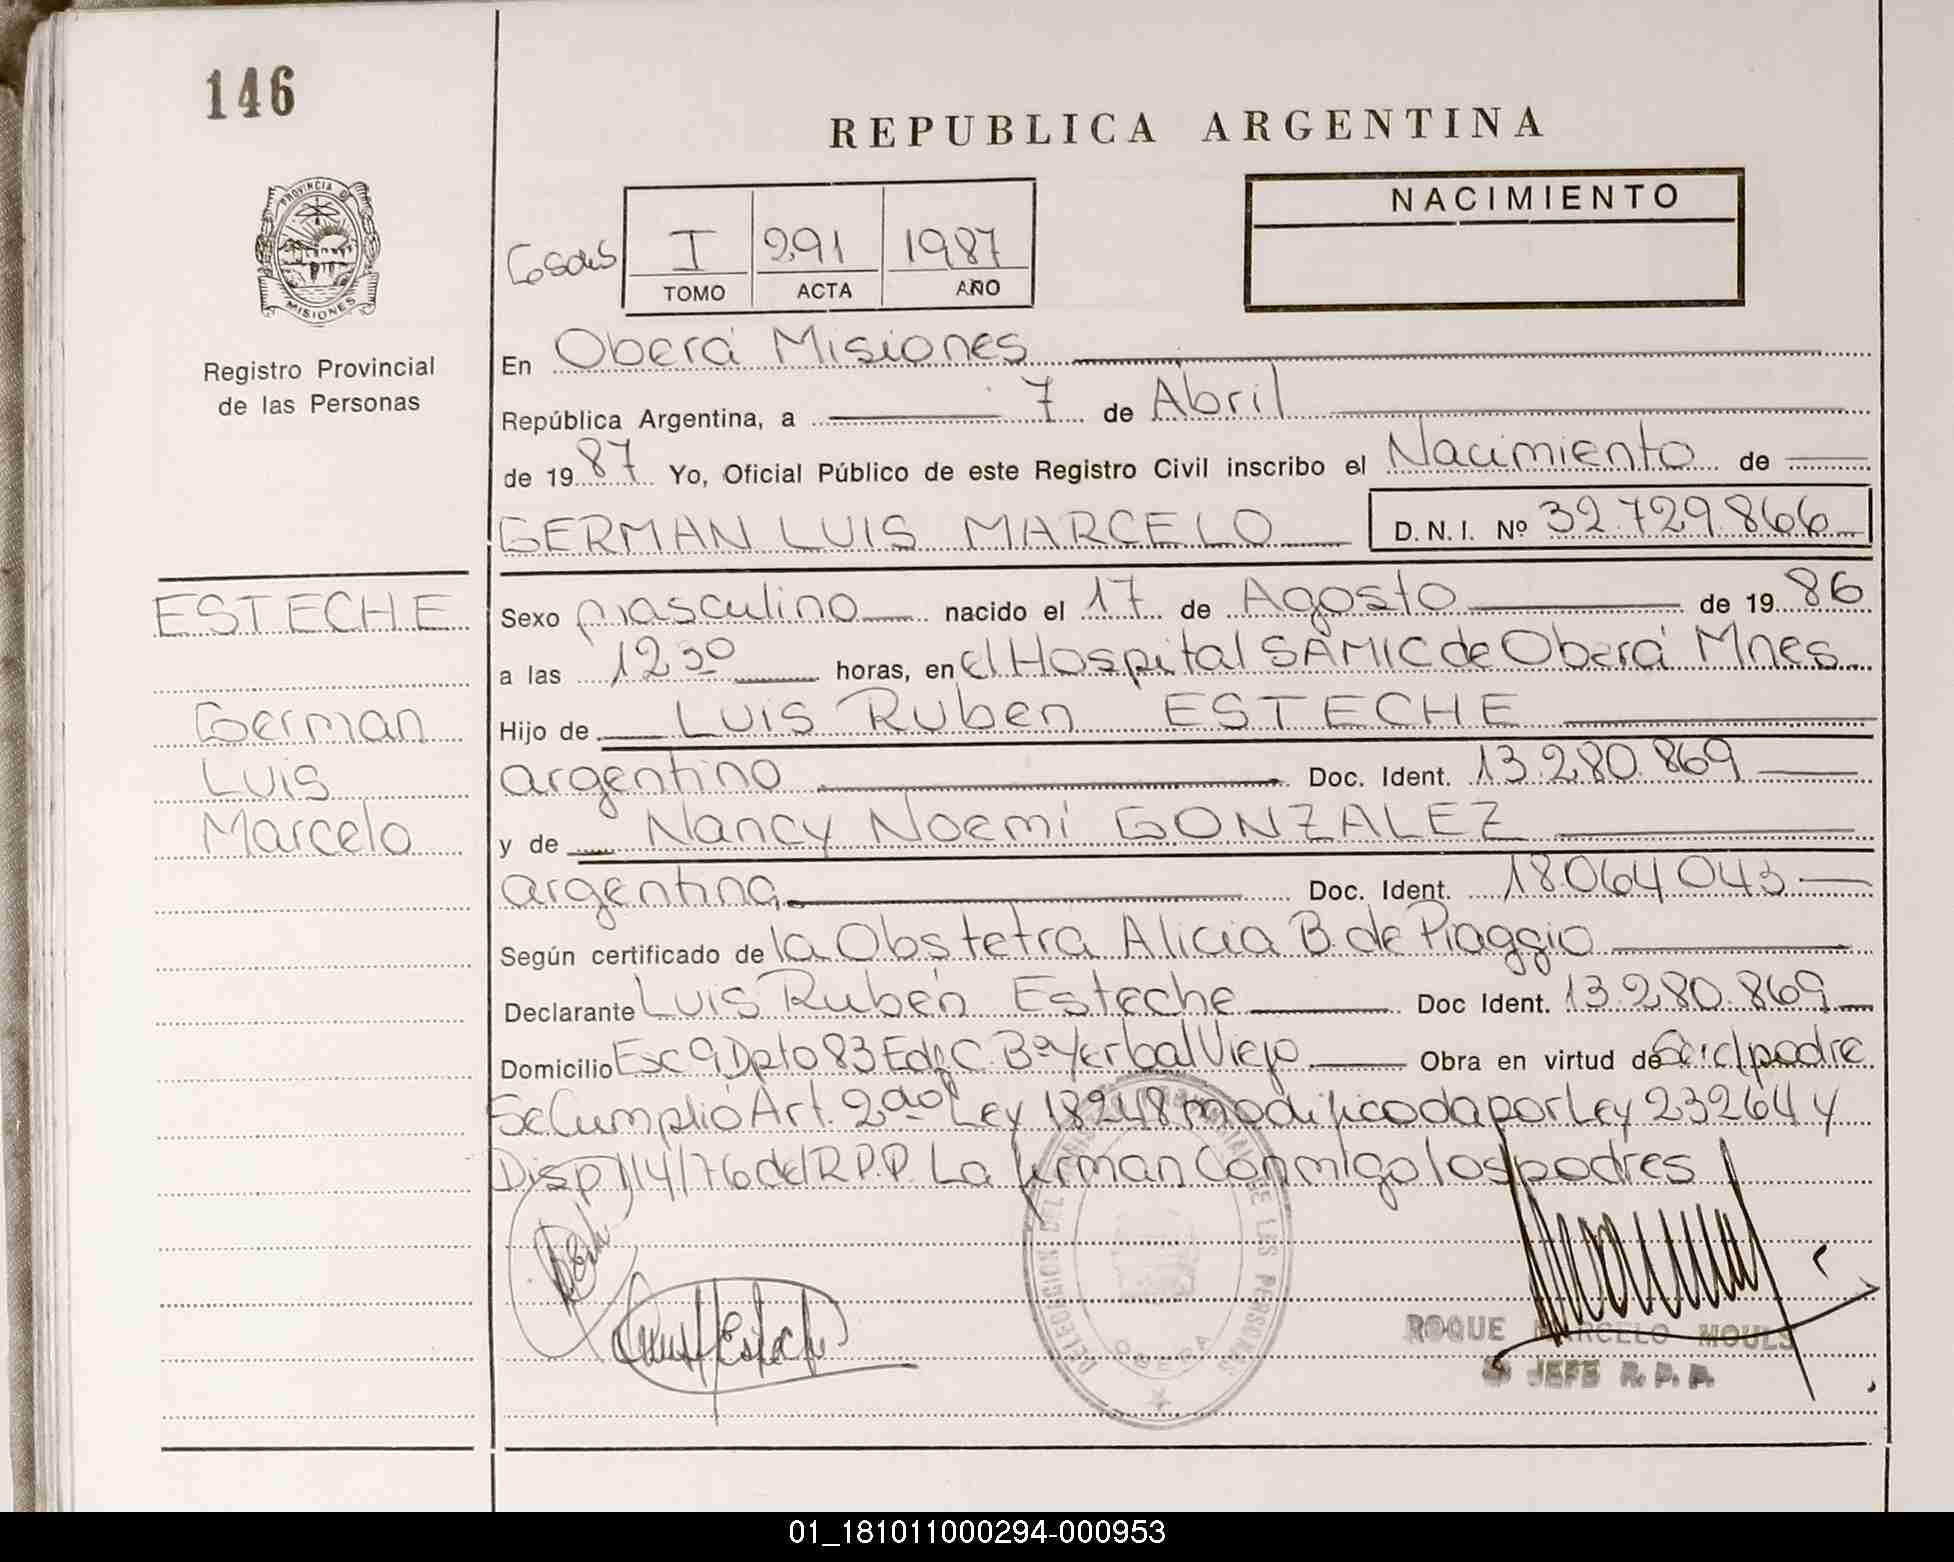 146
REPUBLICA ARGENTINA
PROVINCIA DE
MISIONES
Registro Provincial
de las Personas
I 291 1987
TOMO ACTA AÑO
NACIMIENTO
En Oberá Misiones
República Argentina, a 7 de Abril
de 1987 Yo, Oficial Público de este Registro Civil inscribo el Nacimiento de
GERMAN LUIS MARCELO D.N.I. Nº 32.729.866
ESTECHE
German
Luis
Marcelo
Sexo masculino nacido el 17 de Agosto de 1986
a las 12 30 horas, en el Hospital SAMIC de Oberá Mnes
Hijo de Luis Ruben ESTECHE
argentino Doc. Ident. 13.280.869
y de Nancy Noemí GONZALEZ
argentina Doc. Ident. 18.064.043
Según certificado de la Obstetra Alicia B. de Piaggio
Declarante Luis Rubén Esteche Doc Ident. 13.280.869
Domicilio Esc 9 Dpto 83 Edif C. Bº Yerbal Viejo Obra en virtud de padre
Se Cumplió Art. 2do Ley 18248 modificada por Ley 23264 y
Disp 114/76 del R.P.P. La firman conmigo los padres
DE LAS PERSONAS
OBERA
ROQUE MARCELO MOULS
JEFE R.P.P.
01_181011000294-000953